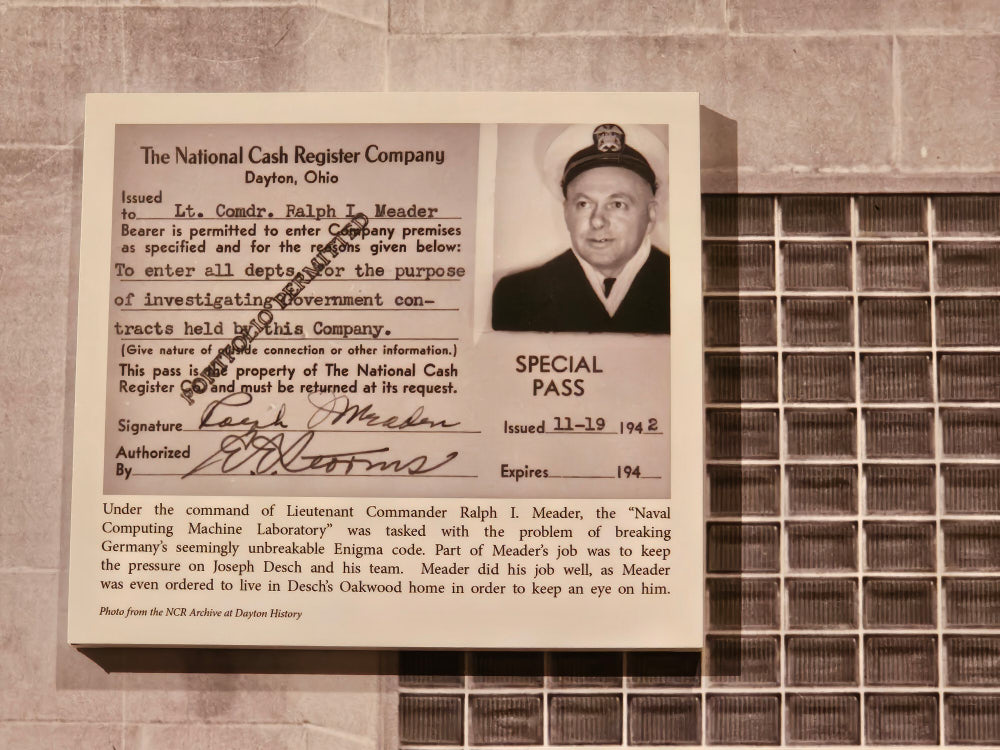 The National Cash Register Company
Dayton, Ohio
Issued
to Lt. Comdr. Ralph I. Meader
Bearer is permitted to enter Company premises
as specified and for the reasons given below:
To enter all depts. for the purpose
of investigating Government con-
tracts held by this Company.
(Give nature of outside connection or other information.)
This pass is the property of The National Cash
Register Co. and must be returned at its request.
PORTFOLIO PERMITTED
Signature Ralph I Meader
Authorized
By
SPECIAL
PASS
Issued 11-19 1942
Expires 194
Under the command of Lieutenant Commander Ralph I. Meader, the “Naval
Computing Machine Laboratory” was tasked with the problem of breaking
Germany’s seemingly unbreakable Enigma code. Part of Meader’s job was to keep
the pressure on Joseph Desch and his team. Meader did his job well, as Meader
was even ordered to live in Desch’s Oakwood home in order to keep an eye on him.
Photo from the NCR Archive at Dayton History